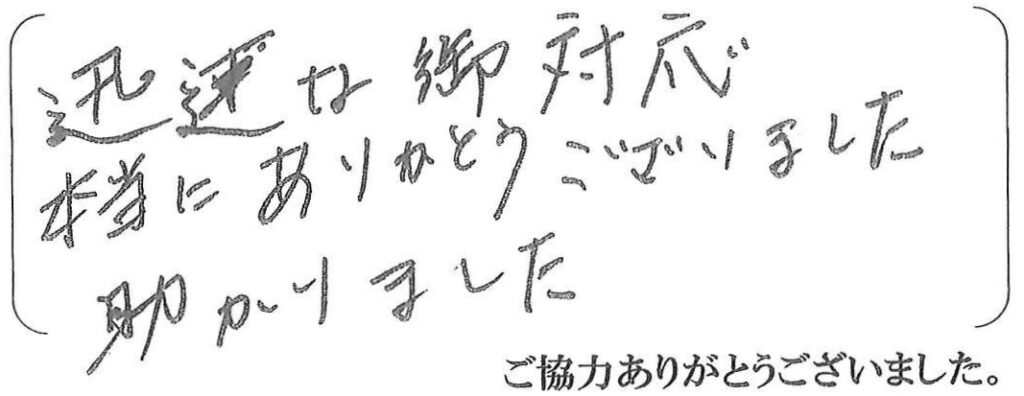 迅速な御対応
本当にありがとうございました
助かりました
ご協力ありがとうございました。